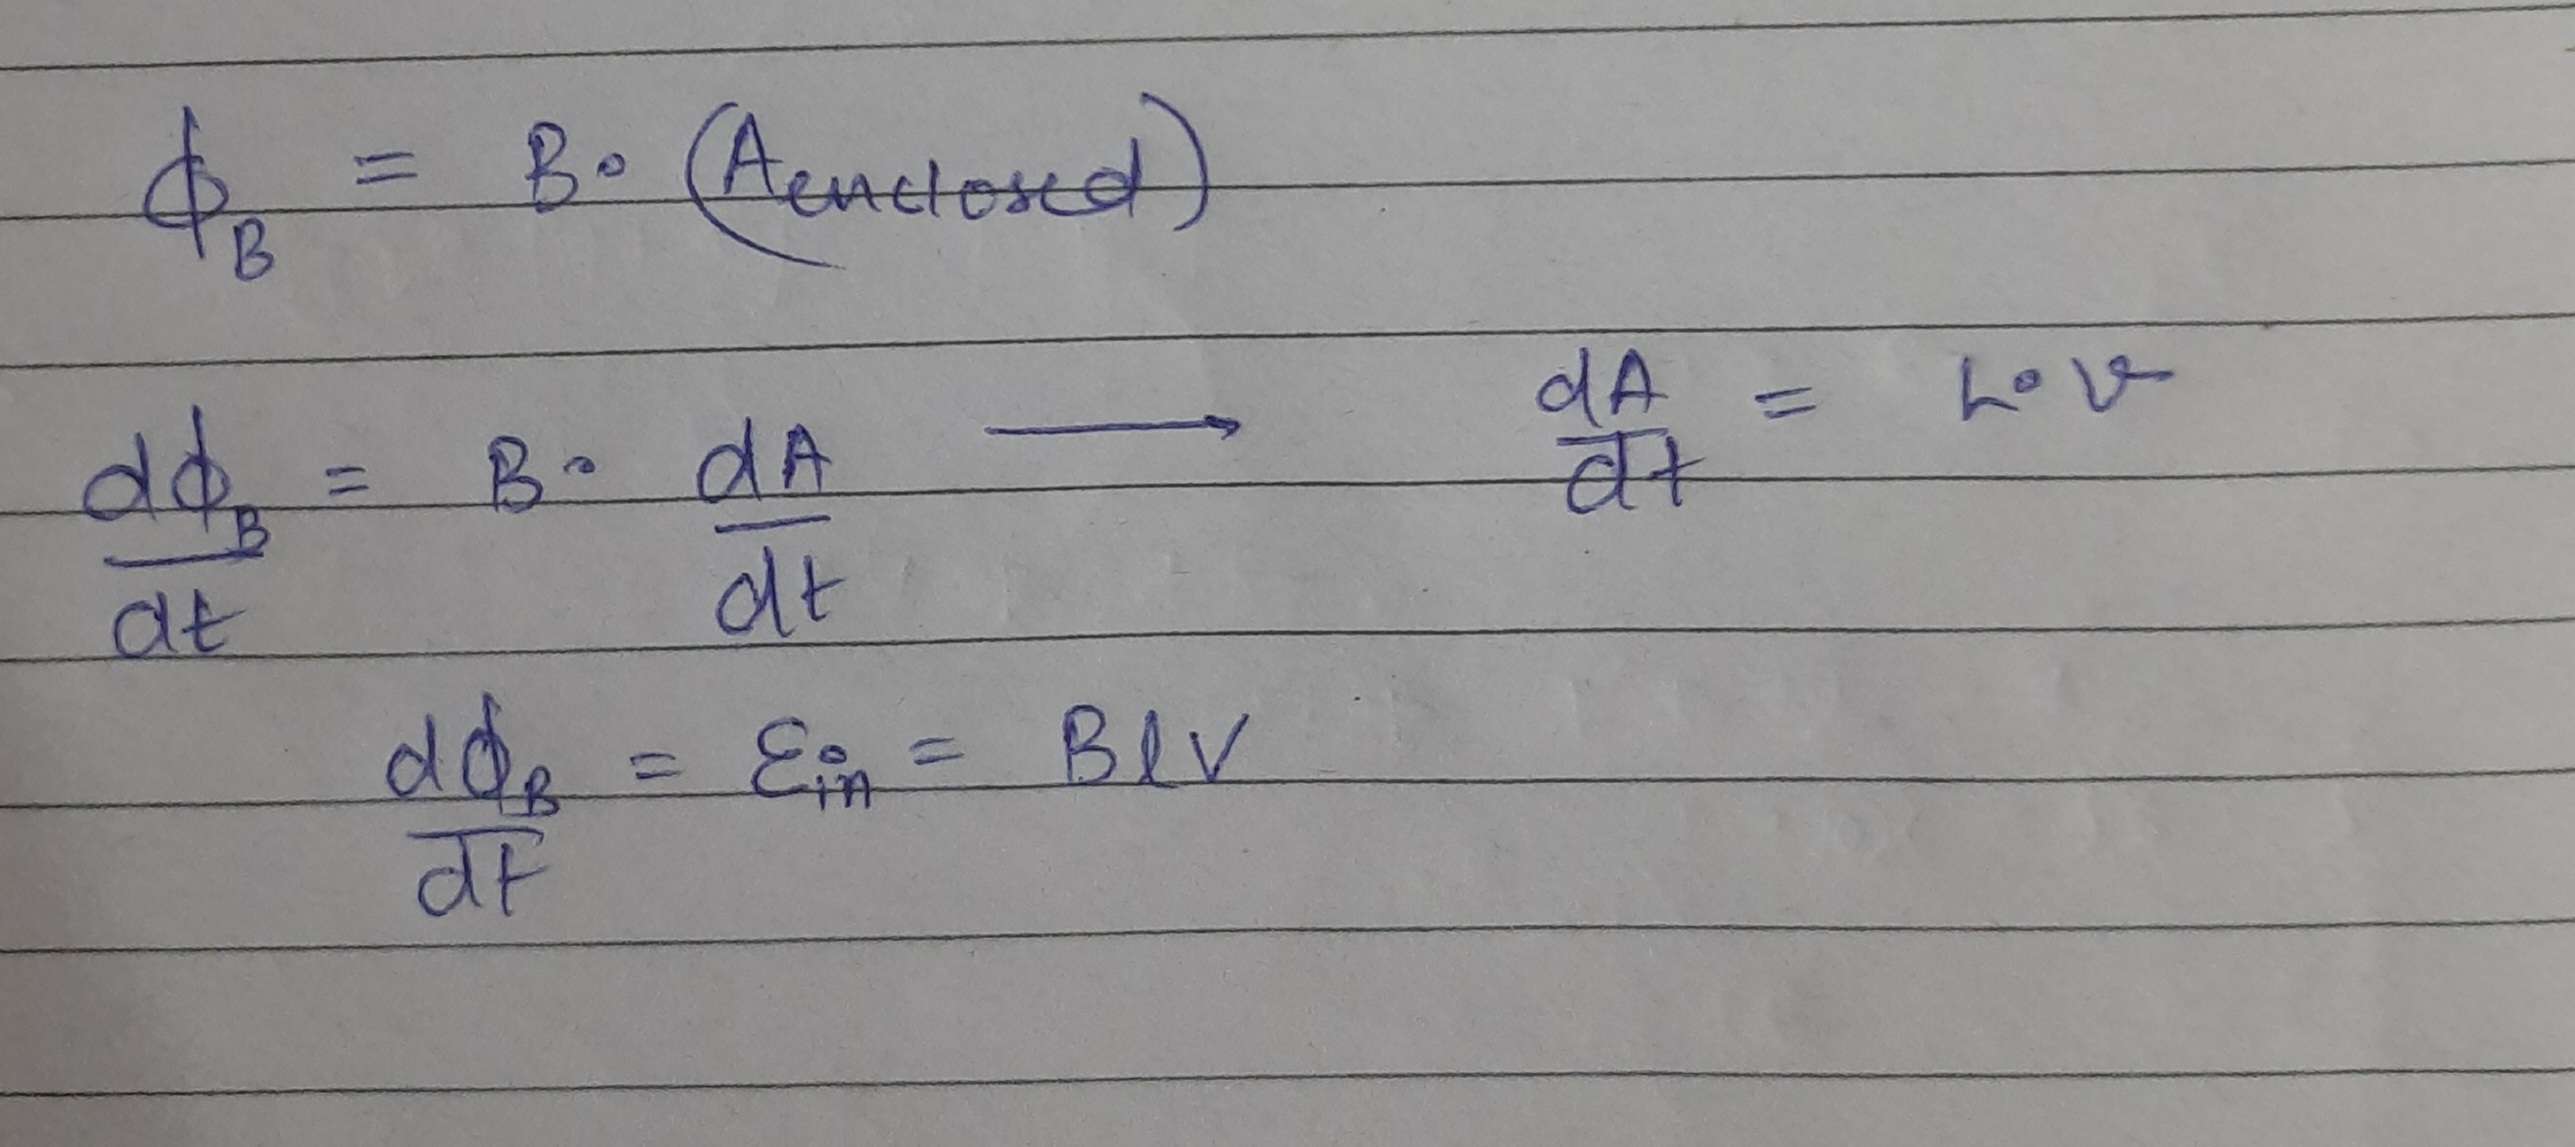 ϕ_B = B · (A enclosed)
dϕ_B/dt = B · dA/dt ⟶ dA/dt = L · v
dϕ_B/dt = ε_in = B l V